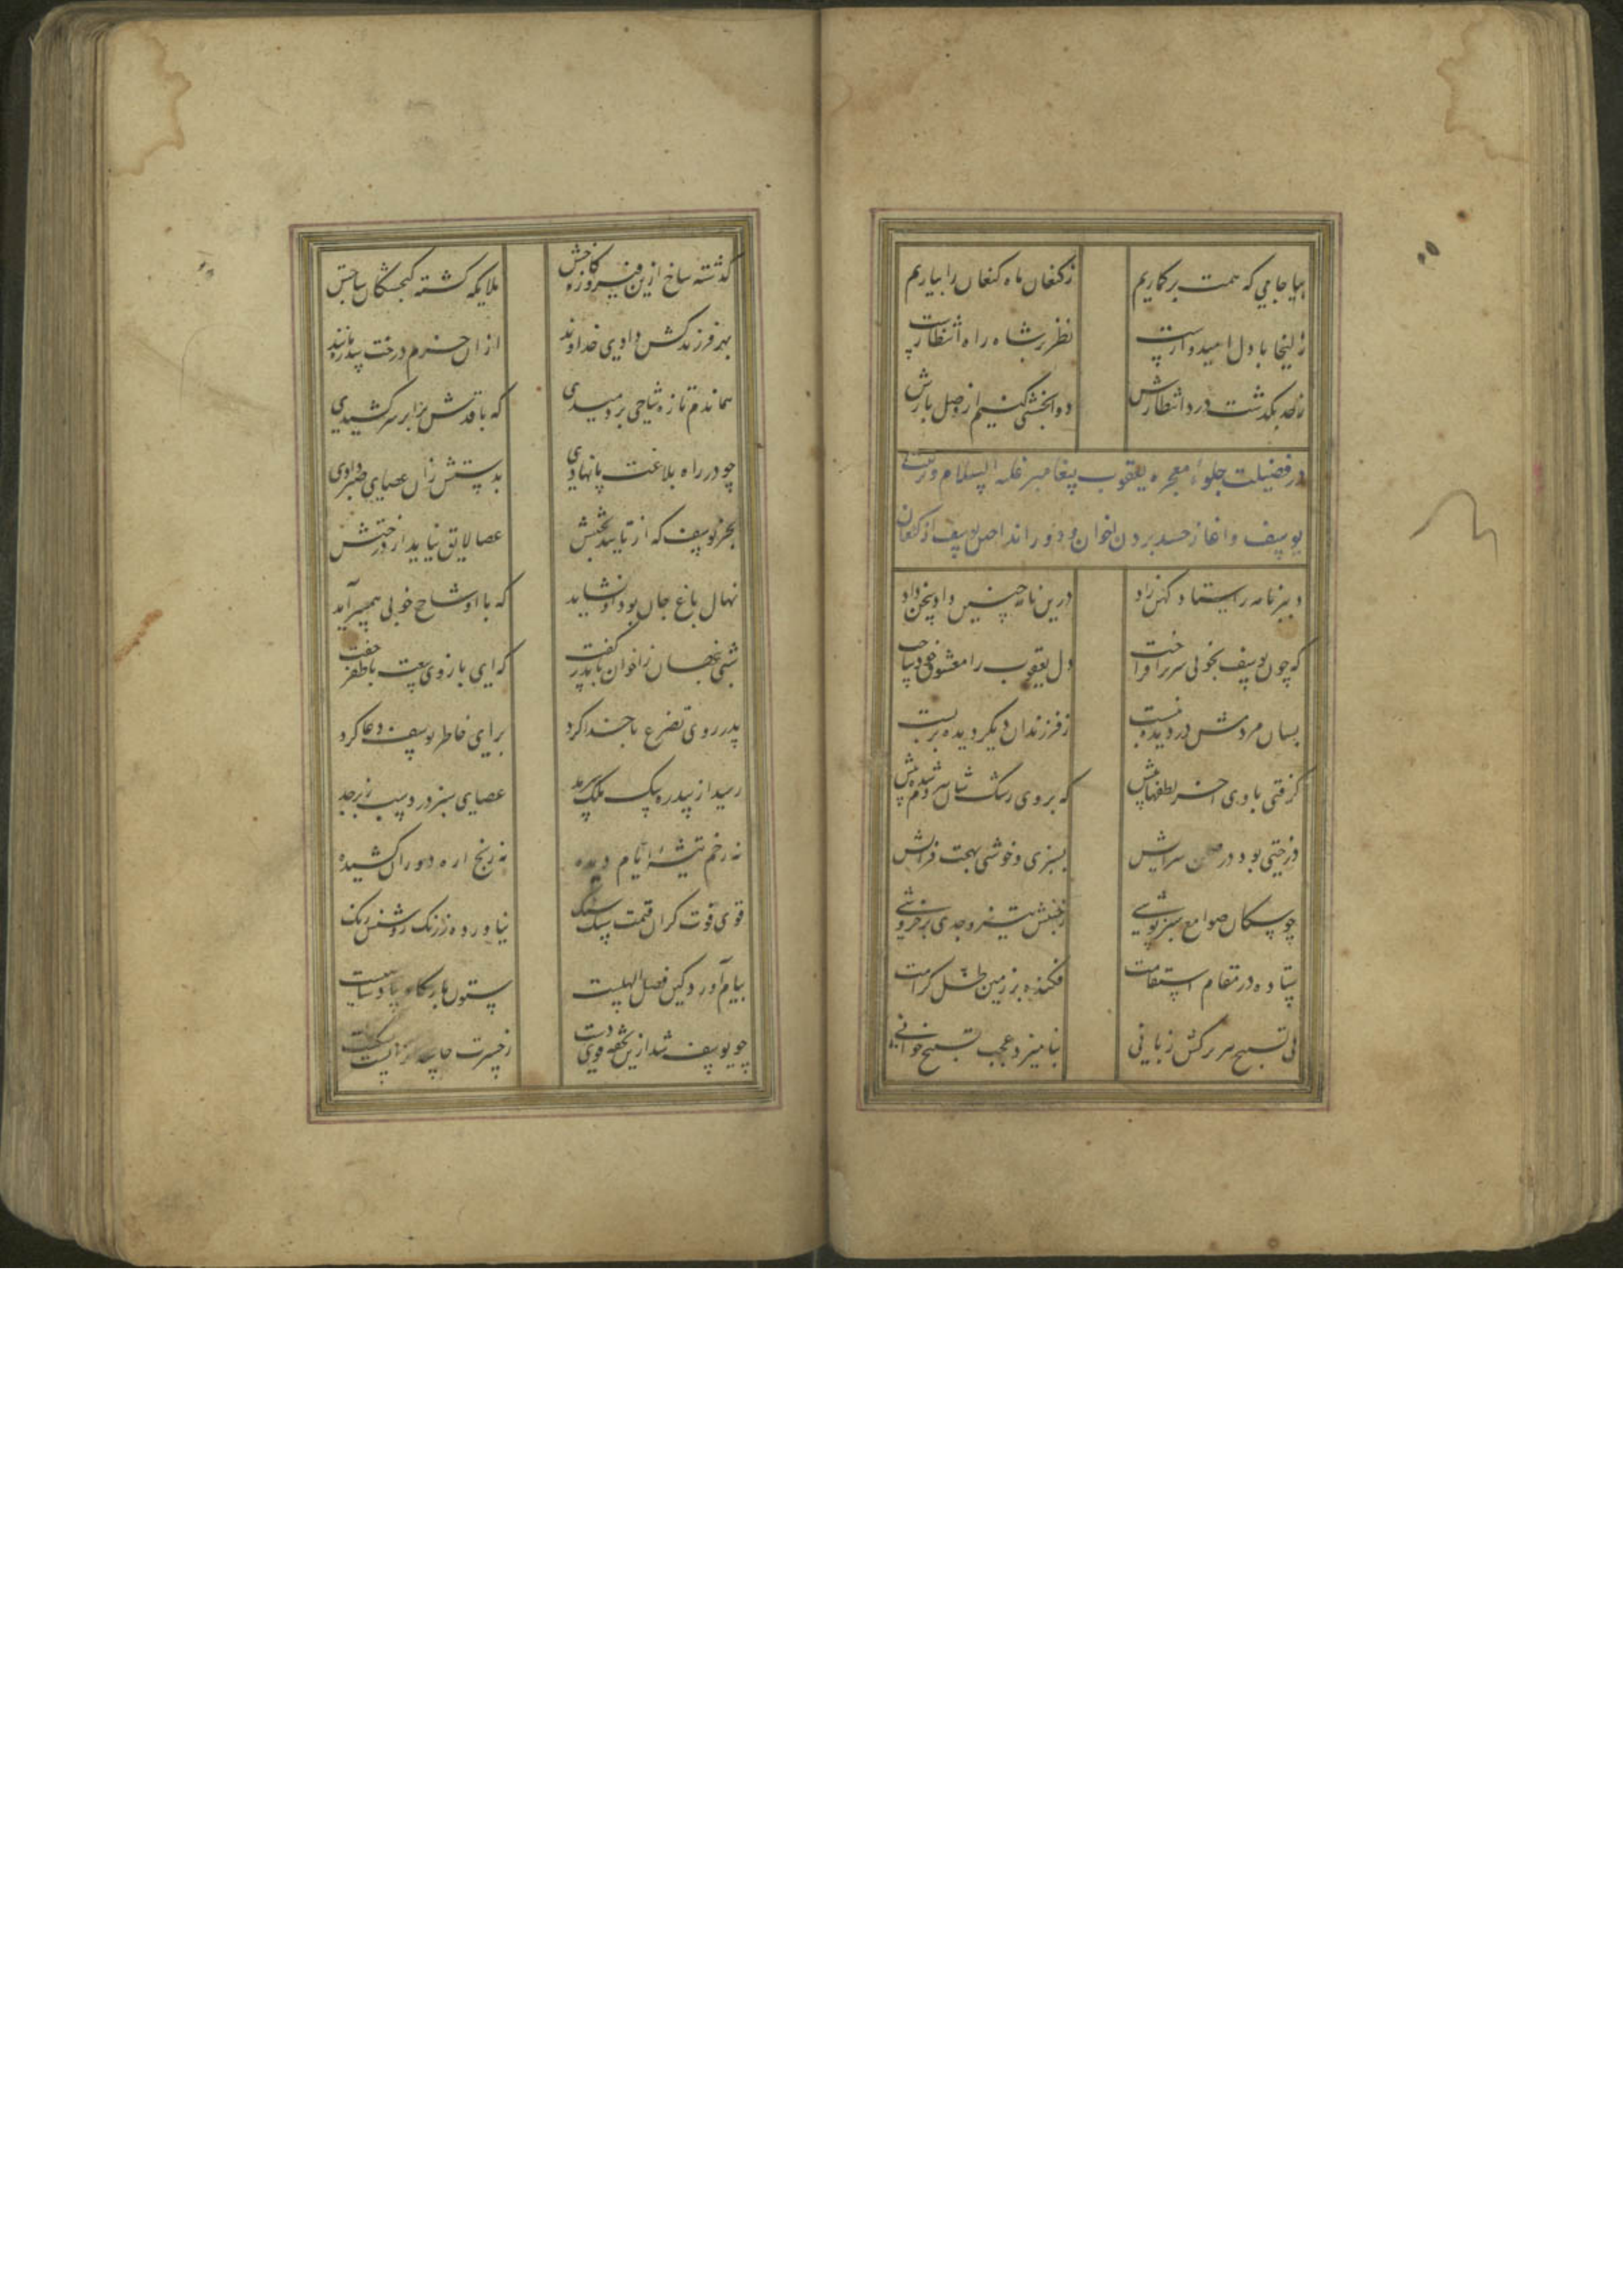 بیا جامی که همت بر گماریم زکنعان ماه کنعان را بیاریم
زلیخا با دل امیدوارست نظر بر شاه راه انتظارست
زحد بگذشت درد انتظارش دوا بخشی کنیم از وصل یارش
در فضیلت جلوۀ معجزه یعقوب پیغامبر علیه السلام و
یوسف و اغاز حسد بردن اخوان و دور انداختن یوسف از کنعان
دبیر نامه را استاد کهن زاد درین نامه چنین داد سخن داد
که چون یوسف بخوبی سر برافراخت دل یعقوب را مشعوف خود ساخت
بسان مردمش در دیده بنشست ز فرزندان دیگر دیده بربست
گرفتی با وی آخر لطفهاپیش که بروی رشک شان هر دم شدی بیش
درختی بود در صحن سرایش بسبزی و خوشی بهجت فزایش
چو سکان صوامع سبزپوشی ز جنبش تیز وجدی پر خروشی
ستاده در مقام استقامت فکنده بر زمین ظل کرامت
پی تسبیح هر برگش زبانی بنامیزد عجب تسبیح خوانی
گذشته شاخ ازین فیروزه کاخش ملایک گشته گنجشکان شاخش
بهر فرزند کش دادی خداوند ازان خرم درخت سدره مانند
هماندم تازه شاخی بردمیدی که با قدش برابر سر کشیدی
چو در راه بلاغت پا نهادی بدستش زان عصای سبز دادی
بجز یوسف که از تایید بختش عصا لایق نیامد از درختش
نهال باغ جان بود او نشاید که با او شاخ خوبی همسر آید
شبی پنهان ز اخوان با پدر گفت که ای بازوی سعیت با ظفر جفت
پدر روی تضرع با خدا کرد برای خاطر یوسف دعا کرد
رسید از سدره پیک ملک سرمد عصای سبز در دست از زبرجد
نه زخم تیشۀ ایام دیده نه رنج اره دوران کشیده
قوی قوت گران قیمت سبک سنگ نیاورده ز زنگ روشنش رنگ
پیام آورد کین فضل الهیست ستون بارگاه پادشاهیست
چو یوسف شد ازین تحفه قوی دست ز حسرت حاسدان را پشت بشکست